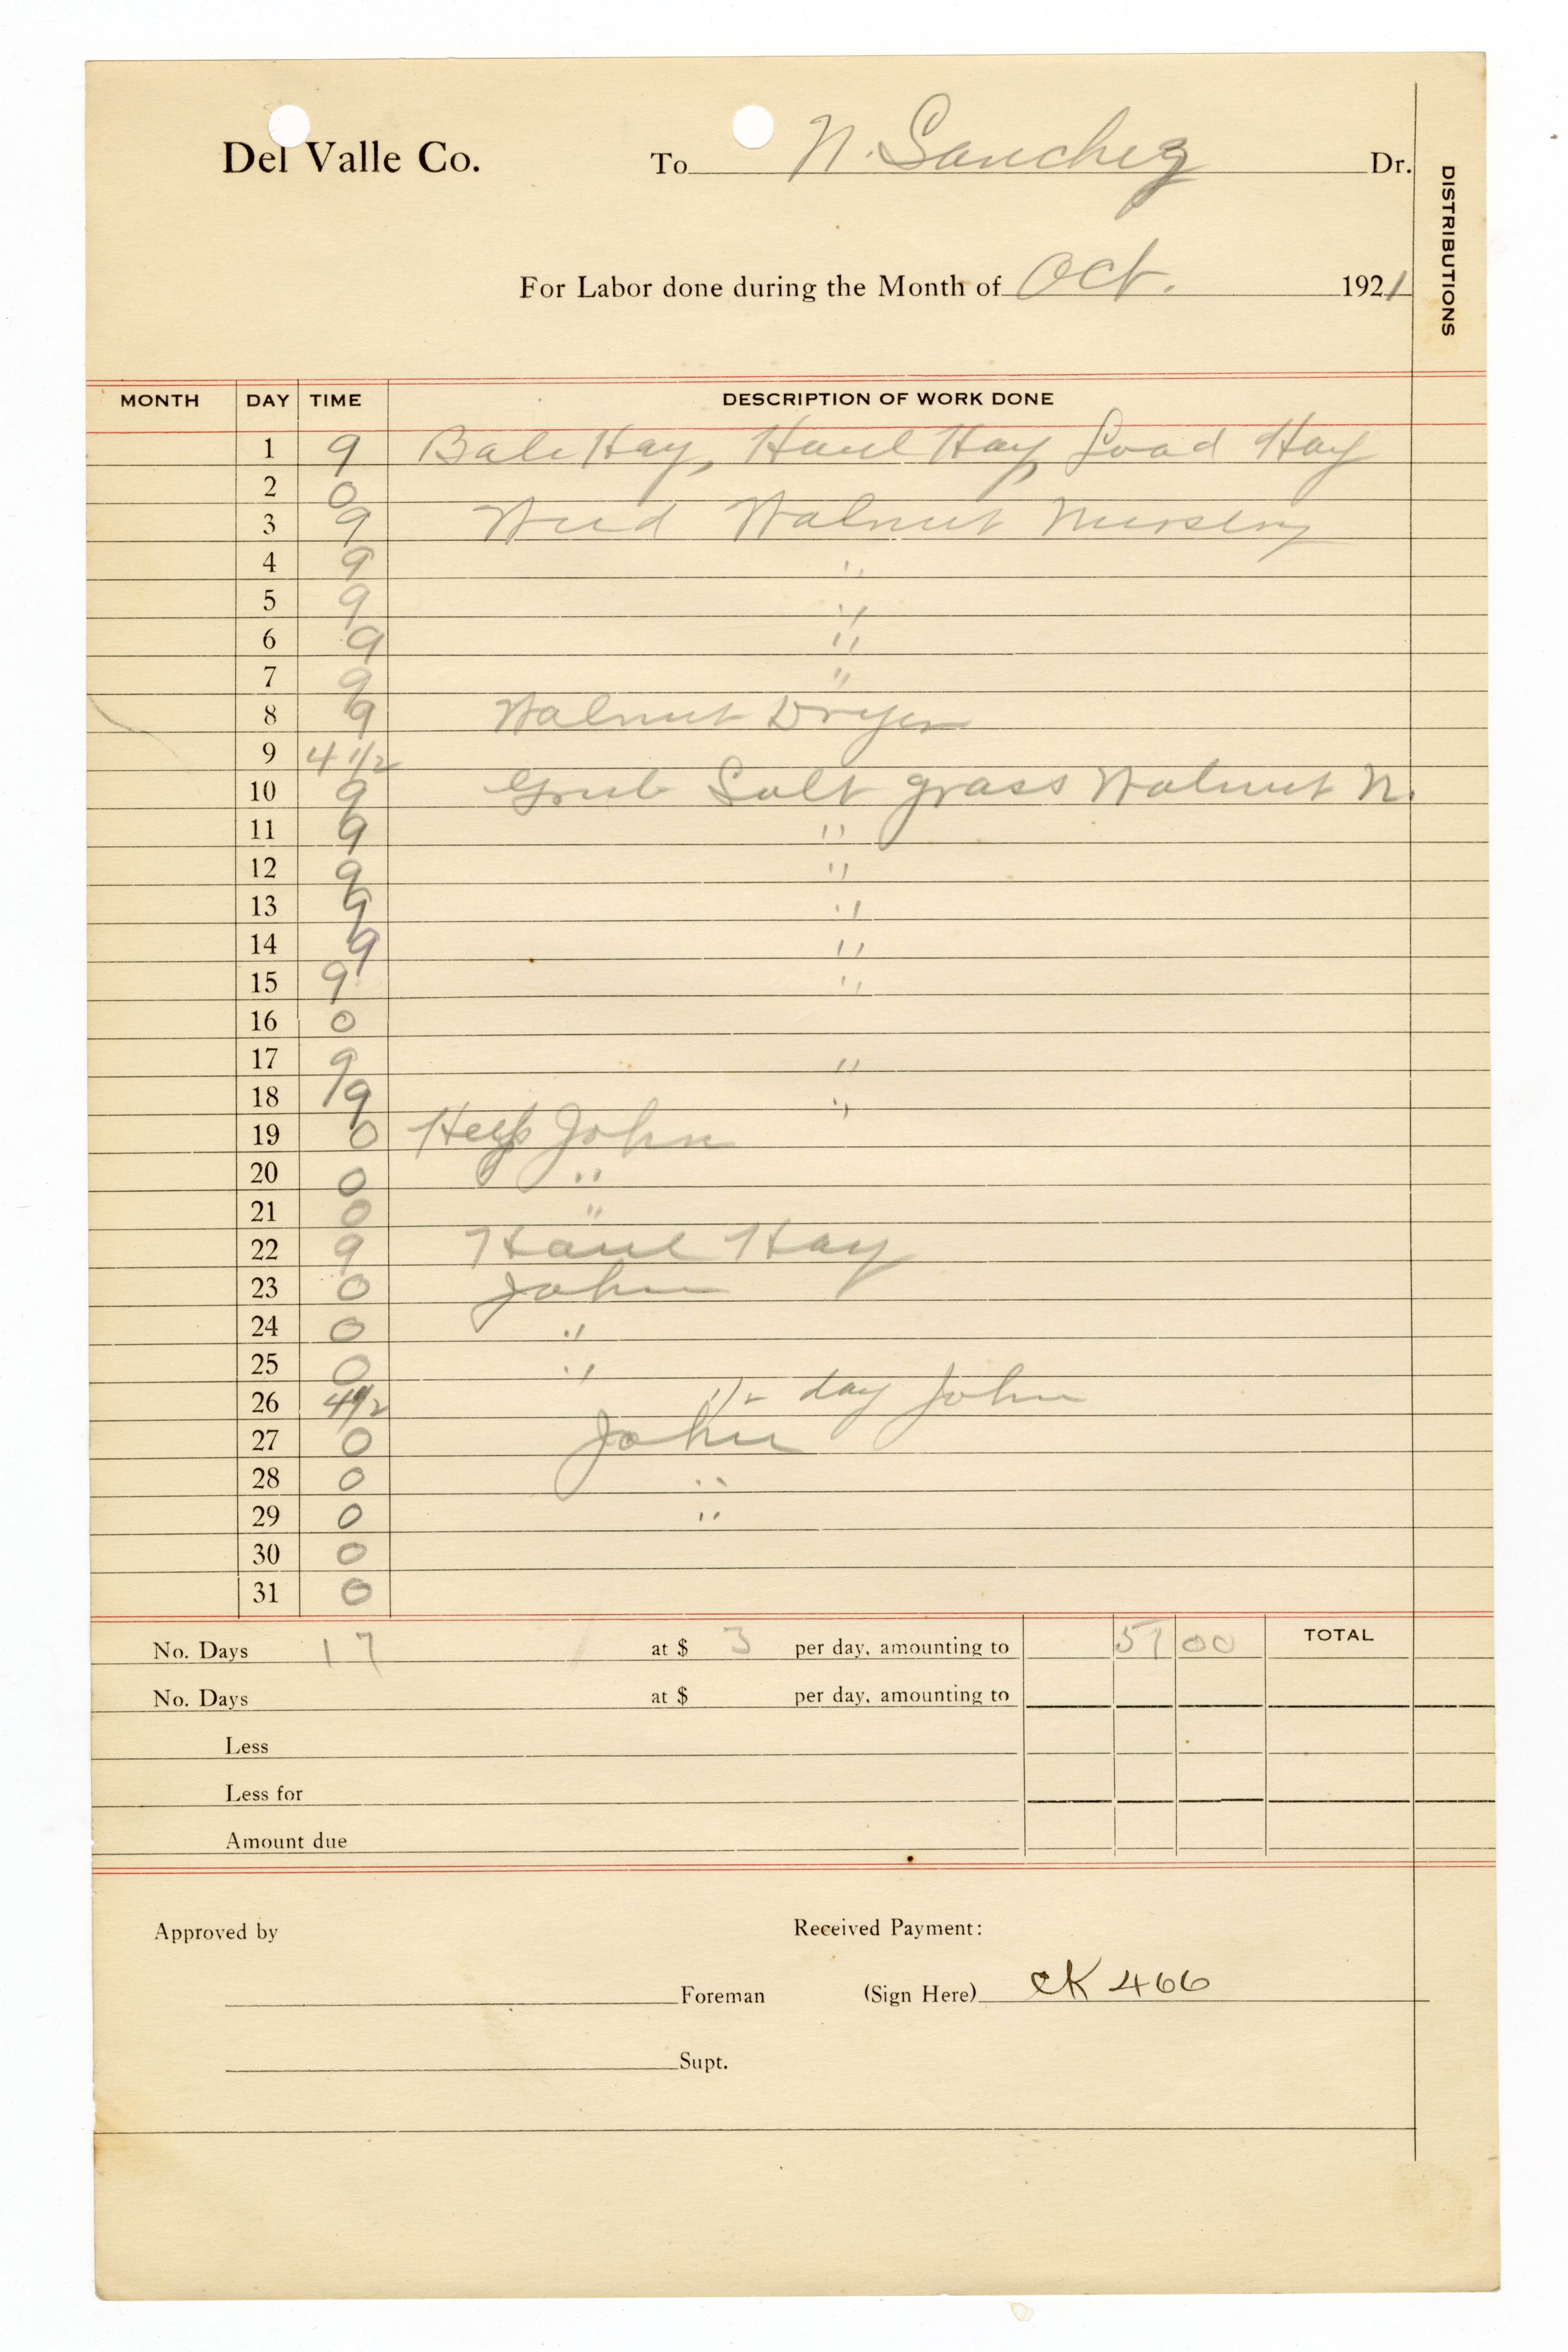 Del Valle Co. To N. Sanchez Dr.
DISTRIBUTIONS
For Labor done during the Month of Oct. 1921
MONTH DAY TIME DESCRIPTION OF WORK DONE
1 9 Bale Hay, Haul Hay, Load Hay
2 0
3 9 Weed Walnut Nursery
4 9 "
5 9 "
6 9 "
7 9 "
8 9 Walnut Dryer
9 4 1/2
10 9 Grub Salt grass Walnut N.
11 9 "
12 9 "
13 9 "
14 9 "
15 9 "
16 0
17 9 "
18 9 "
19 0 Help John
20 0 "
21 0 "
22 9 Haul Hay
23 0 John
24 0 "
25 0 "
26 4 1/2 1/2 day John
27 0 John
28 0 "
29 0 "
30 0
31 0
No. Days 17 at $ 3 per day, amounting to 51 00 TOTAL
No. Days at $ per day, amounting to
Less
Less for
Amount due
Approved by Received Payment:
Foreman (Sign Here) CK 466
Supt.